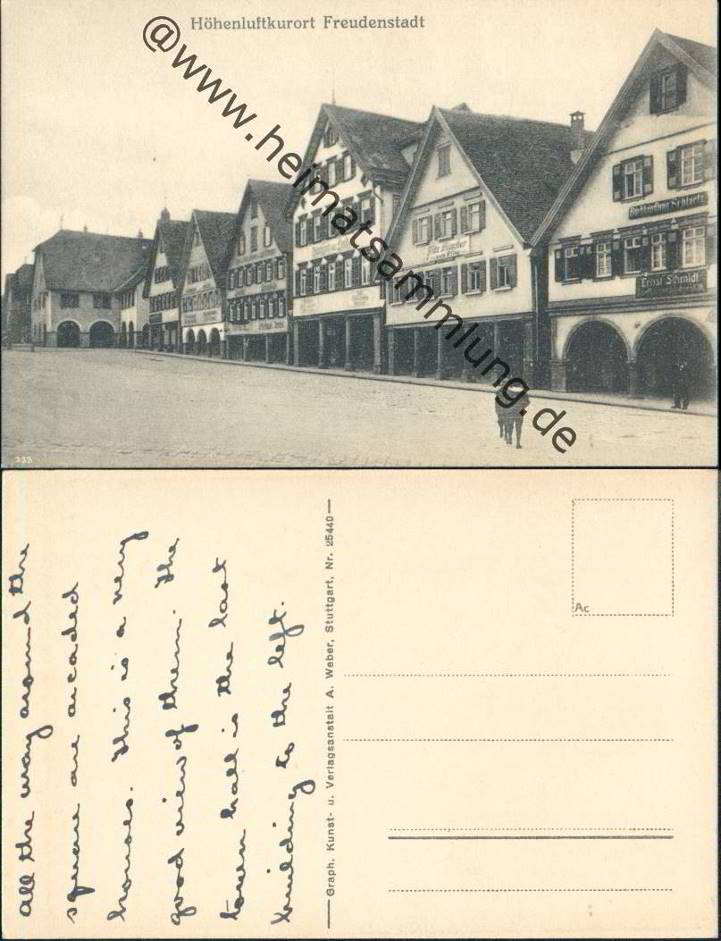 Höhenluftkurort Freudenstadt
@www.heimatsammlung.de
Buchhandlung Schlaetz
Ernst Schmidt
333
all the way around the
square are arcaded
houses. This is a very
good view of them. The
town hall is the last
building to the left.
Graph. Kunst- u. Verlagsanstalt A. Weber, Stuttgart, Nr. 25440
Ac